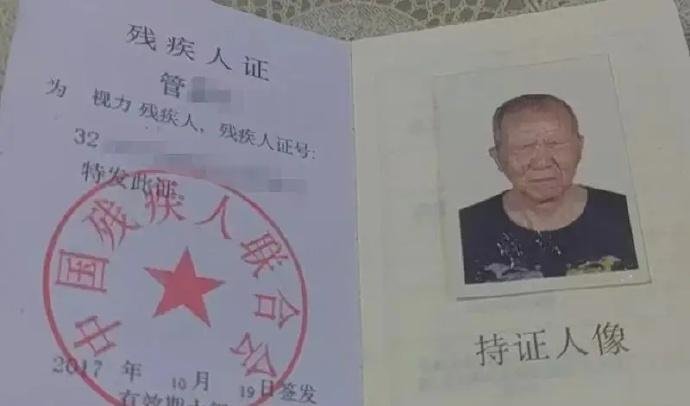 残疾人证
管
为 视力 残疾人，残疾人证号：
32
特发此证。
中国残疾人联合会
2017 年 10 月 19日签发
有效期十年
持证人像